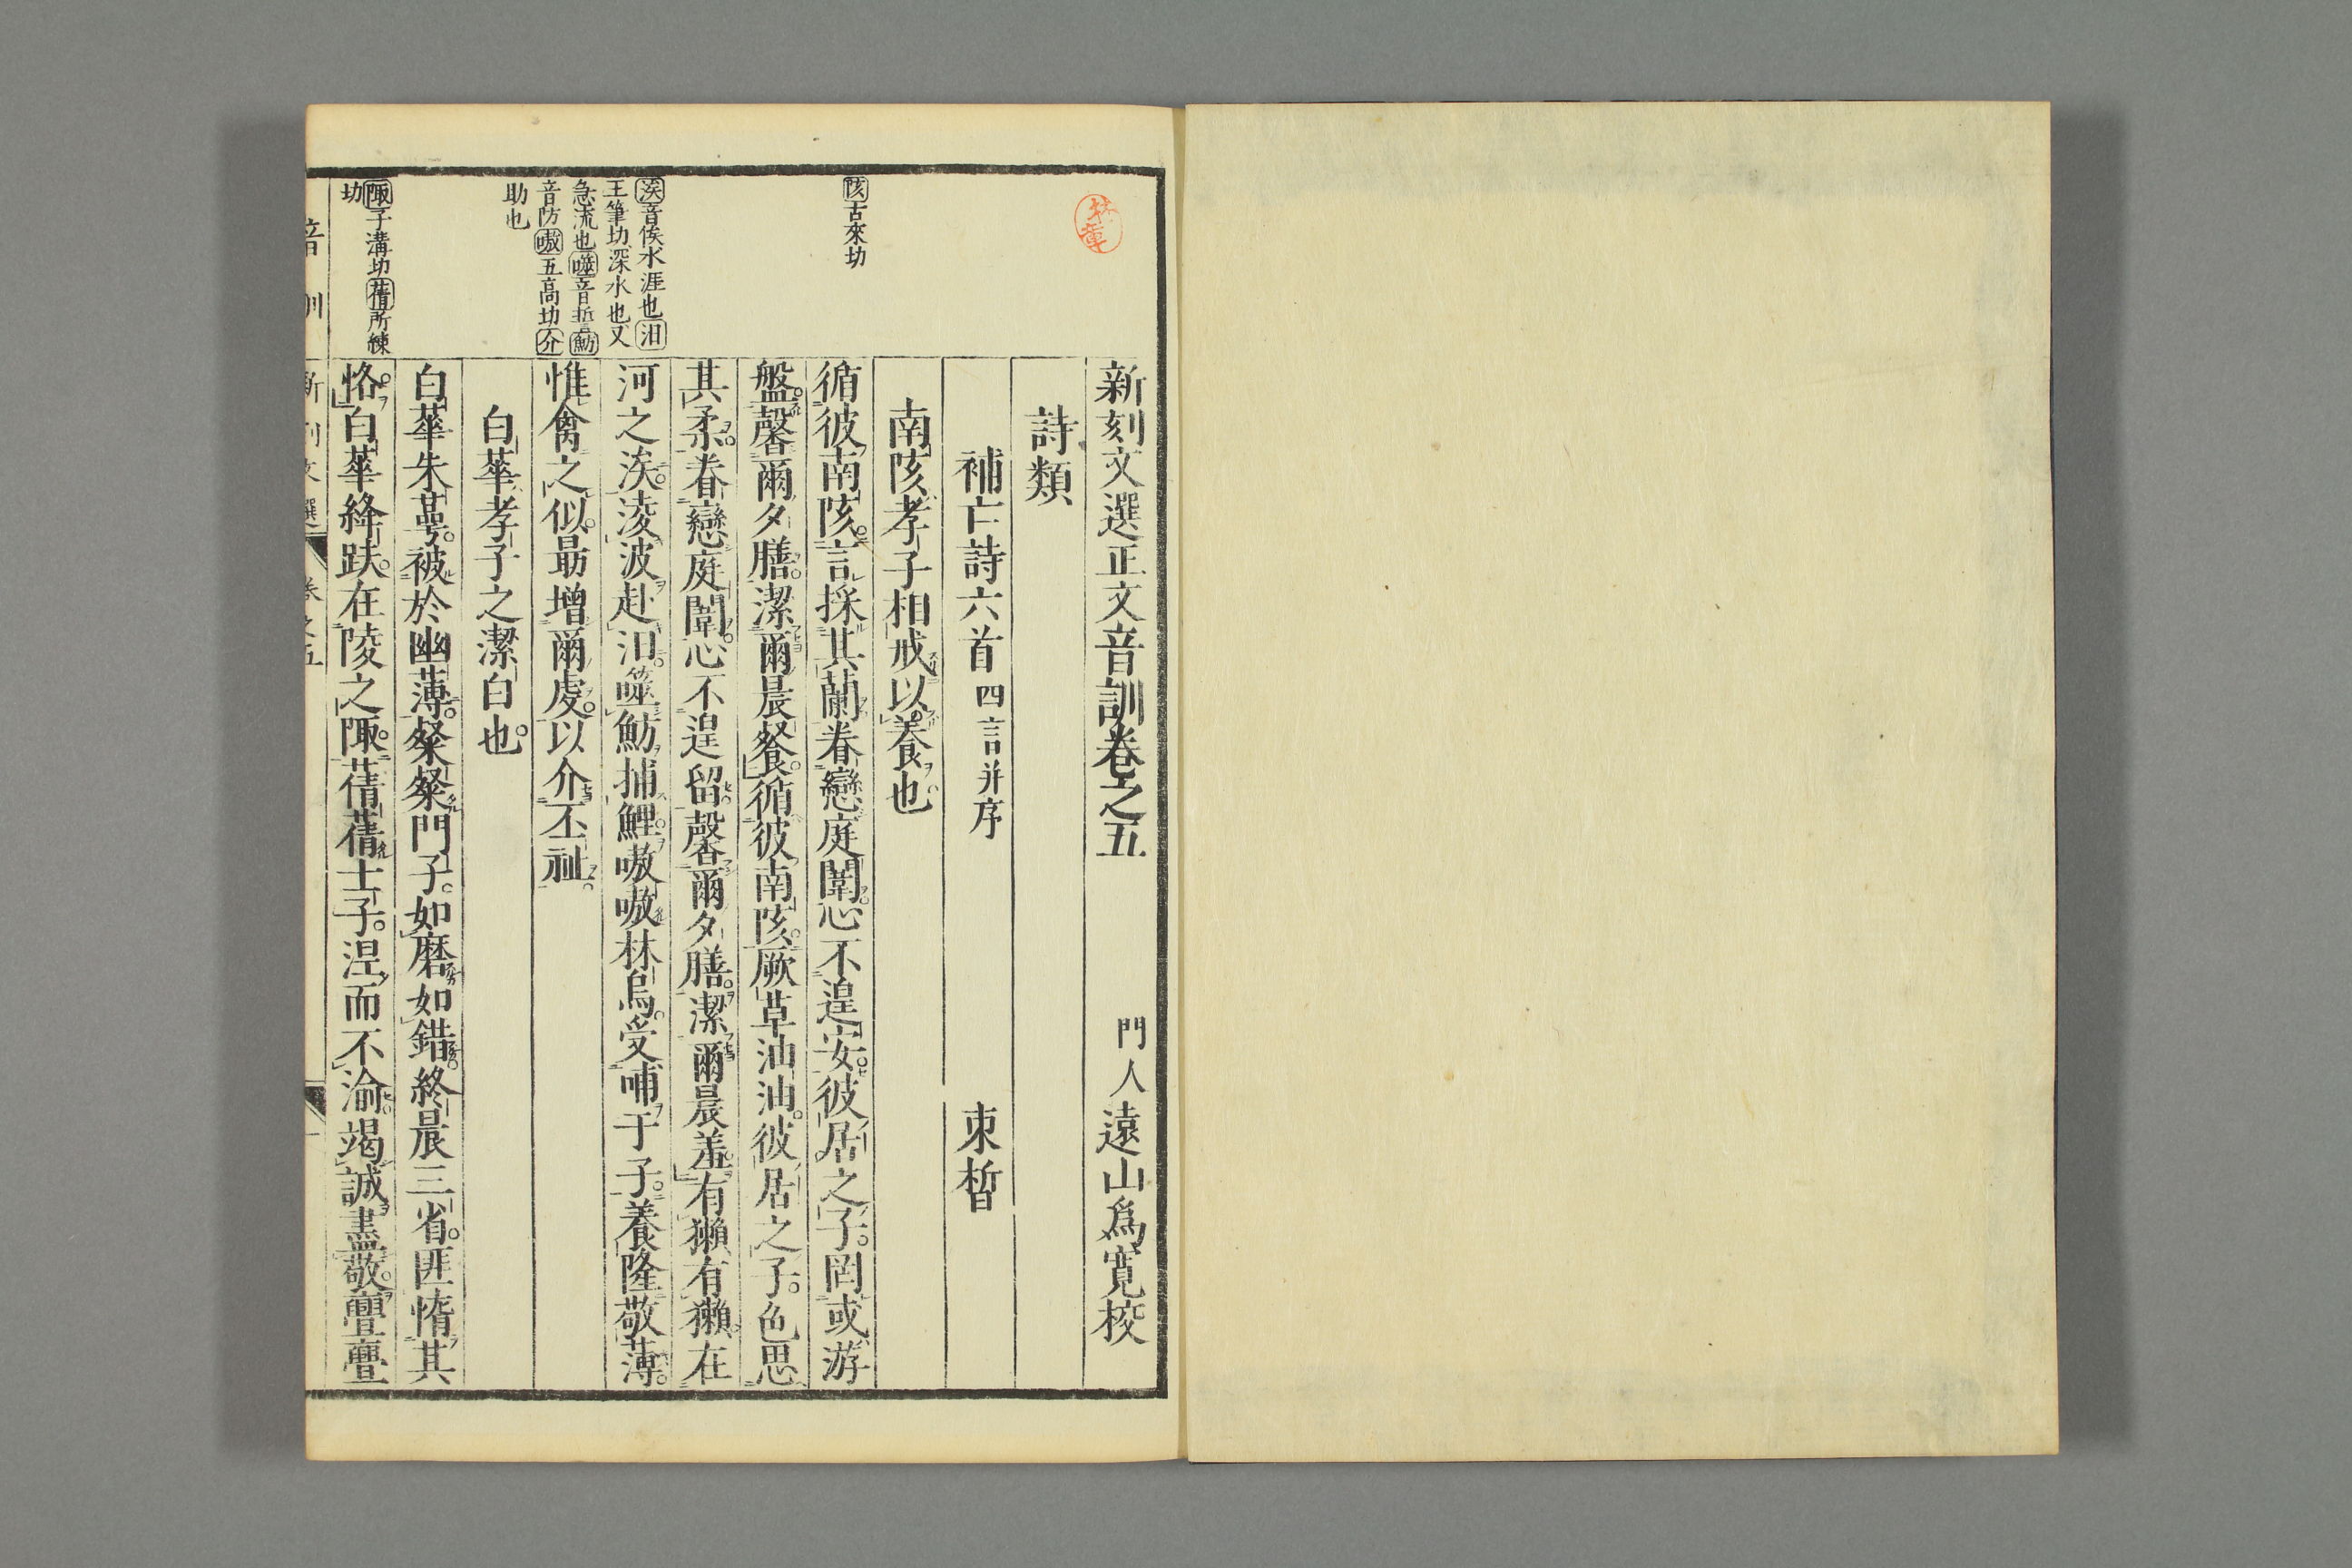 新刻文選正文音訓卷之五　門人遠山爲寬校
詩類
補亡詩六首四言并序　束晳
南陔孝子相戒以養也
循彼南陔言採其蘭眷戀庭闈心不遑安彼居之子罔或游
盤馨爾夕膳潔爾晨餐循彼南陔厥草油油彼居之子色思
其柔眷戀庭闈心不遑留馨爾夕膳潔爾晨羞有獺有獺在
河之涘淩波赴汨噬魴捕鯉嗷嗷林烏受哺于子養隆敬薄
惟禽之似勗增爾虔以介丕祉
白華孝子之潔白也
白華朱萼被於幽薄粲粲門子如磨如錯終晨三省匪惰其
恪白華絳趺在陵之陬蒨蒨士子涅而不渝竭誠盡敬亹亹
陔古來切
涘音俟水涯也汨
王筆切深水也又
急流也噬音誓魴
音防嗷五高切介
助也
陬子溝切蒨所練
切